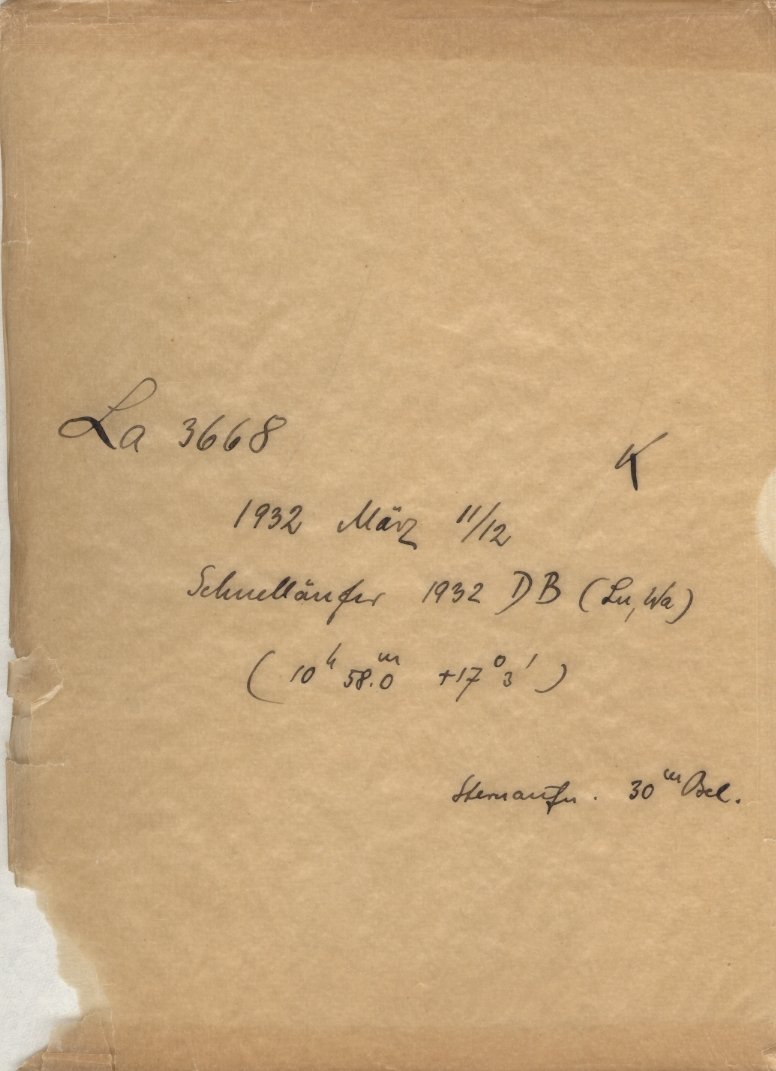 La 3668
K
1932 März 11/12
Schnelläufer 1932 DB (Lu, Wa)
( 10ʰ 58.0ᵐ +17° 3' )
Sternaufn. 30ᵐ Bel.